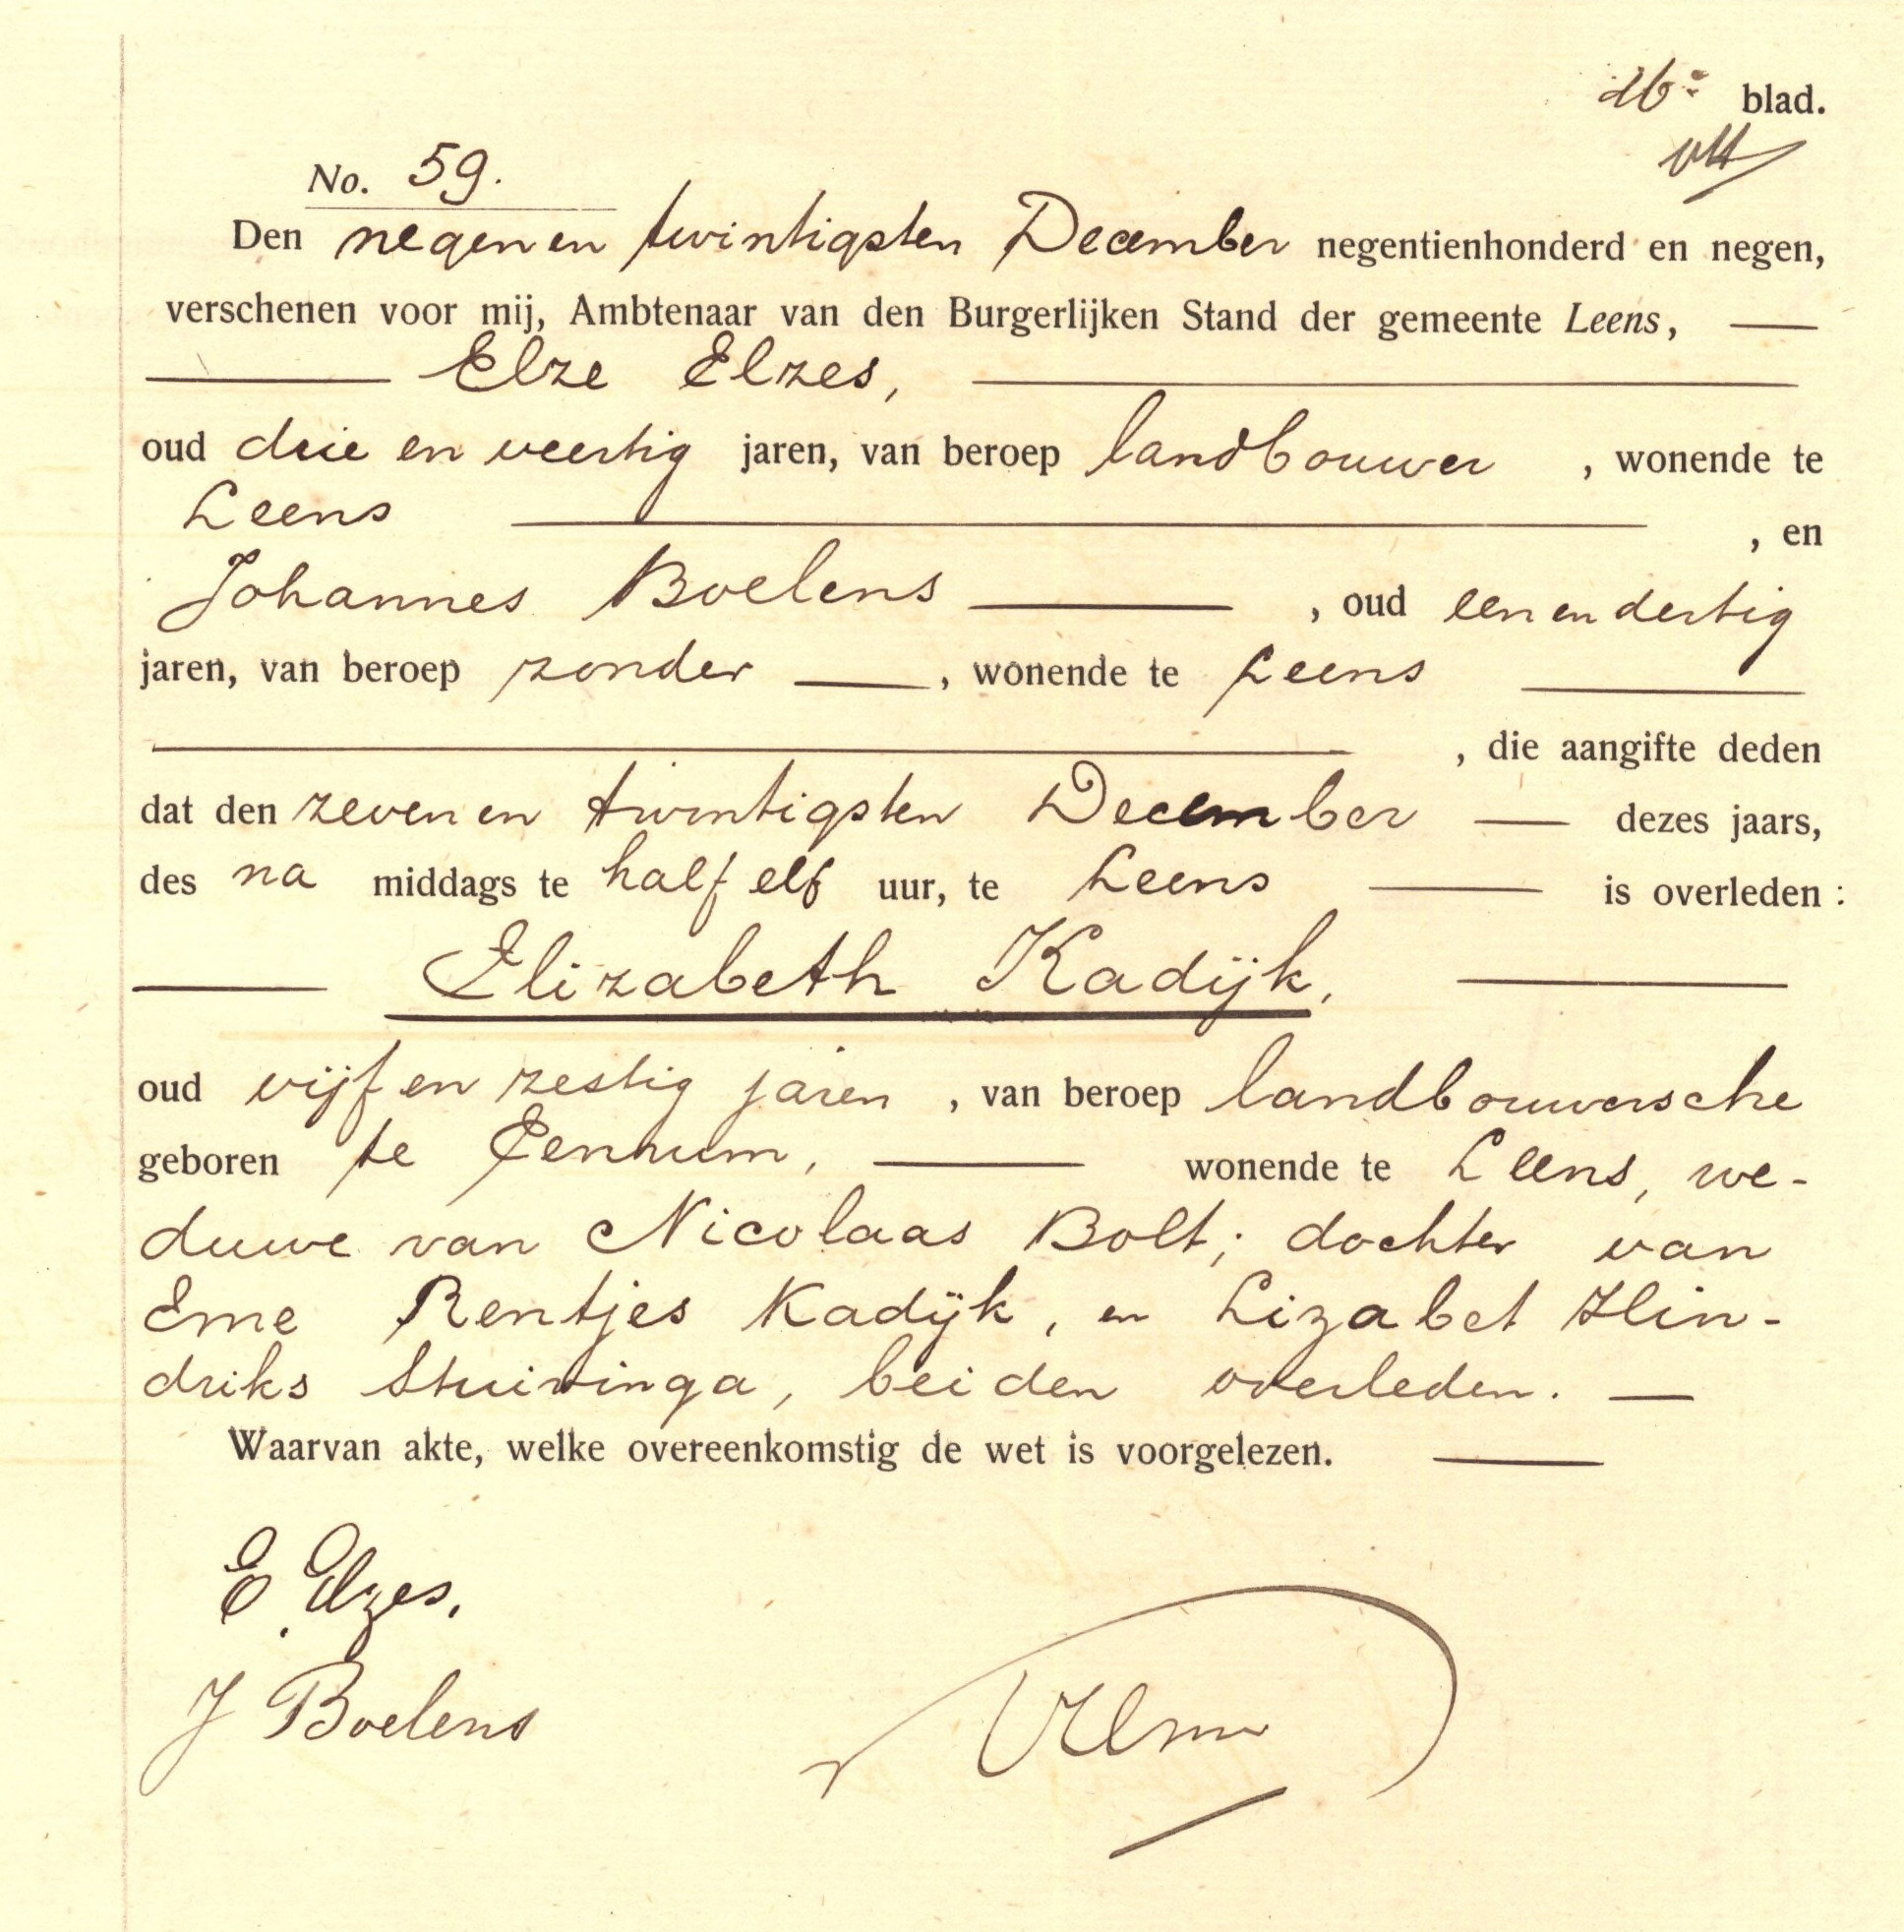 16e blad.
No. 59.
Den negen en twintigsten December negentienhonderd en negen,
verschenen voor mij, Ambtenaar van den Burgerlijken Stand der gemeente Leens,
Elze Elzes,
oud drie en veertig jaren, van beroep landbouwer , wonende te
Leens , en
Johannes Boelens , oud een en dertig
jaren, van beroep zonder , wonende te Leens
, die aangifte deden
dat den zeven en twintigsten December dezes jaars,
des na middags te half elf uur, te Leens is overleden :
Elizabeth Kadijk,
oud vijf en zestig jaren , van beroep landbouwersche
geboren te Eenrum, wonende te Leens, we-
duwe van Nicolaas Bolt; dochter van
Eme Rentjes Kadijk, en Lizabet Hin-
driks Stuivinga, beiden overleden.
Waarvan akte, welke overeenkomstig de wet is voorgelezen.
E. Elzes.
J Boelens